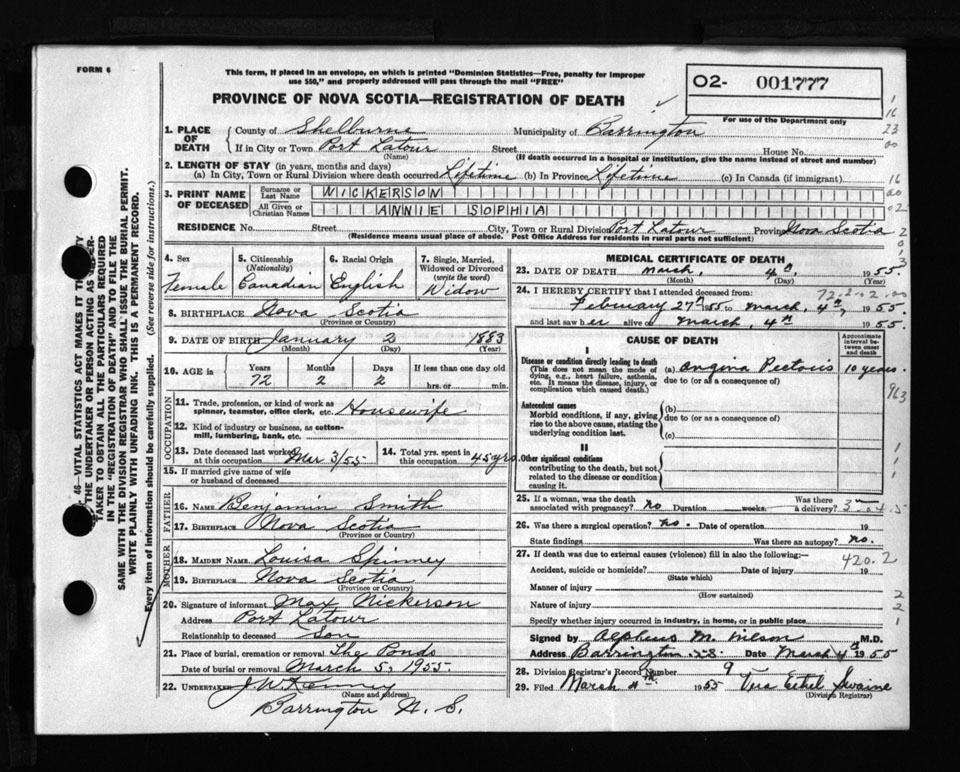 FORM 6
This form, if placed in an envelope, on which is printed "Dominion Statistics—Free, penalty for improper
use $50," and properly addressed will pass through the mail "FREE"
O2- 001777
For use of the Department only
PROVINCE OF NOVA SCOTIA—REGISTRATION OF DEATH
46—VITAL STATISTICS ACT MAKES IT THE DUTY
THE UNDERTAKER OR PERSON ACTING AS UNDER-
TAKER TO OBTAIN ALL THE PARTICULARS REQUIRED
IN THE "REGISTRATION OF DEATH" AND TO FILE THE
SAME WITH THE DIVISION REGISTRAR WHO SHALL ISSUE THE BURIAL PERMIT.
WRITE PLAINLY WITH UNFADING INK. THIS IS A PERMANENT RECORD.
Every item of information should be carefully supplied. (See reverse side for instructions.)
1. PLACE OF DEATH County of Shelburne Municipality of Barrington
If in City or Town Port Latour Street House No.
(Name) (If death occurred in a hospital or institution, give the name instead of street and number)
2. LENGTH OF STAY (in years, months and days)
(a) In City, Town or Rural Division where death occurred Lifetime (b) In Province Lifetime (c) In Canada (if immigrant)
3. PRINT NAME OF DECEASED Surname or Last Name NICKERSON
All Given or Christian Names ANNIE SOPHIA
RESIDENCE No. Street City, Town or Rural Division Port Latour Province Nova Scotia
(Residence means usual place of abode. Post Office Address for residents in rural parts not sufficient)
4. Sex Female
5. Citizenship (Nationality) Canadian
6. Racial Origin English
7. Single, Married, Widowed or Divorced (write the word) Widow
8. BIRTHPLACE Nova Scotia
(Province or Country)
9. DATE OF BIRTH January 2 1883
(Month) (Day) (Year)
10. AGE in Years 72 Months 2 Days 2 If less than one day old hrs. or min.
OCCUPATION
11. Trade, profession, or kind of work as spinner, teamster, office clerk, etc. Housewife
12. Kind of industry or business, as cotton-mill, lumbering, bank, etc.
13. Date deceased last worked at this occupation Mar 3/55 14. Total yrs. spent in this occupation 45 yrs.
15. If married give name of wife or husband of deceased
FATHER
16. Name Benjamin Smith
17. Birthplace Nova Scotia
(Province or Country)
MOTHER
18. Maiden Name Louisa Spinney
19. Birthplace Nova Scotia
(Province or Country)
20. Signature of informant Max Nickerson
Address Port Latour
Relationship to deceased Son
21. Place of burial, cremation or removal The Ponds
Date of burial or removal March 5, 1955
22. Undertaker J W Kenney
(Name and address)
Barrington N. S.
MEDICAL CERTIFICATE OF DEATH
23. DATE OF DEATH March, 4th, 1955
(Month) (Day) (Year)
24. I HEREBY CERTIFY that I attended deceased from 72.2.02.00
February 27th 1955 to March, 4th, 1955
and last saw her alive on March, 4th 1955
CAUSE OF DEATH
Approximate interval between onset and death
I
Disease or condition directly leading to death (a) Angina Pectoris 10 years.
(This does not mean the mode of dying, e.g., heart failure, asthenia, etc. It means the disease, injury, or complication which caused death.) due to (or as a consequence of)
Antecedent causes (b)
Morbid conditions, if any, giving rise to the above cause, stating the underlying condition last. due to (or as a consequence of)
(c)
II
Other significant conditions
contributing to the death, but not related to the disease or condition causing it.
25. If a woman, was the death associated with pregnancy? No Duration weeks. Was there a delivery?
26. Was there a surgical operation? No. Date of operation 19
State findings Was there an autopsy? No.
27. If death was due to external causes (violence) fill in also the following:— 420.2
Accident, suicide or homicide? Date of injury 19
(State which)
Manner of injury
(How sustained)
Nature of injury
Specify whether injury occurred in industry, in home, or in public place
Signed by Alpheus M. Wilson M.D.
Address Barrington N.S. Date March 4th 1955
28. Division Registrar's Record Number 9
29. Filed March 4th 1955 Vera Ethel Swaine
(Division Registrar)